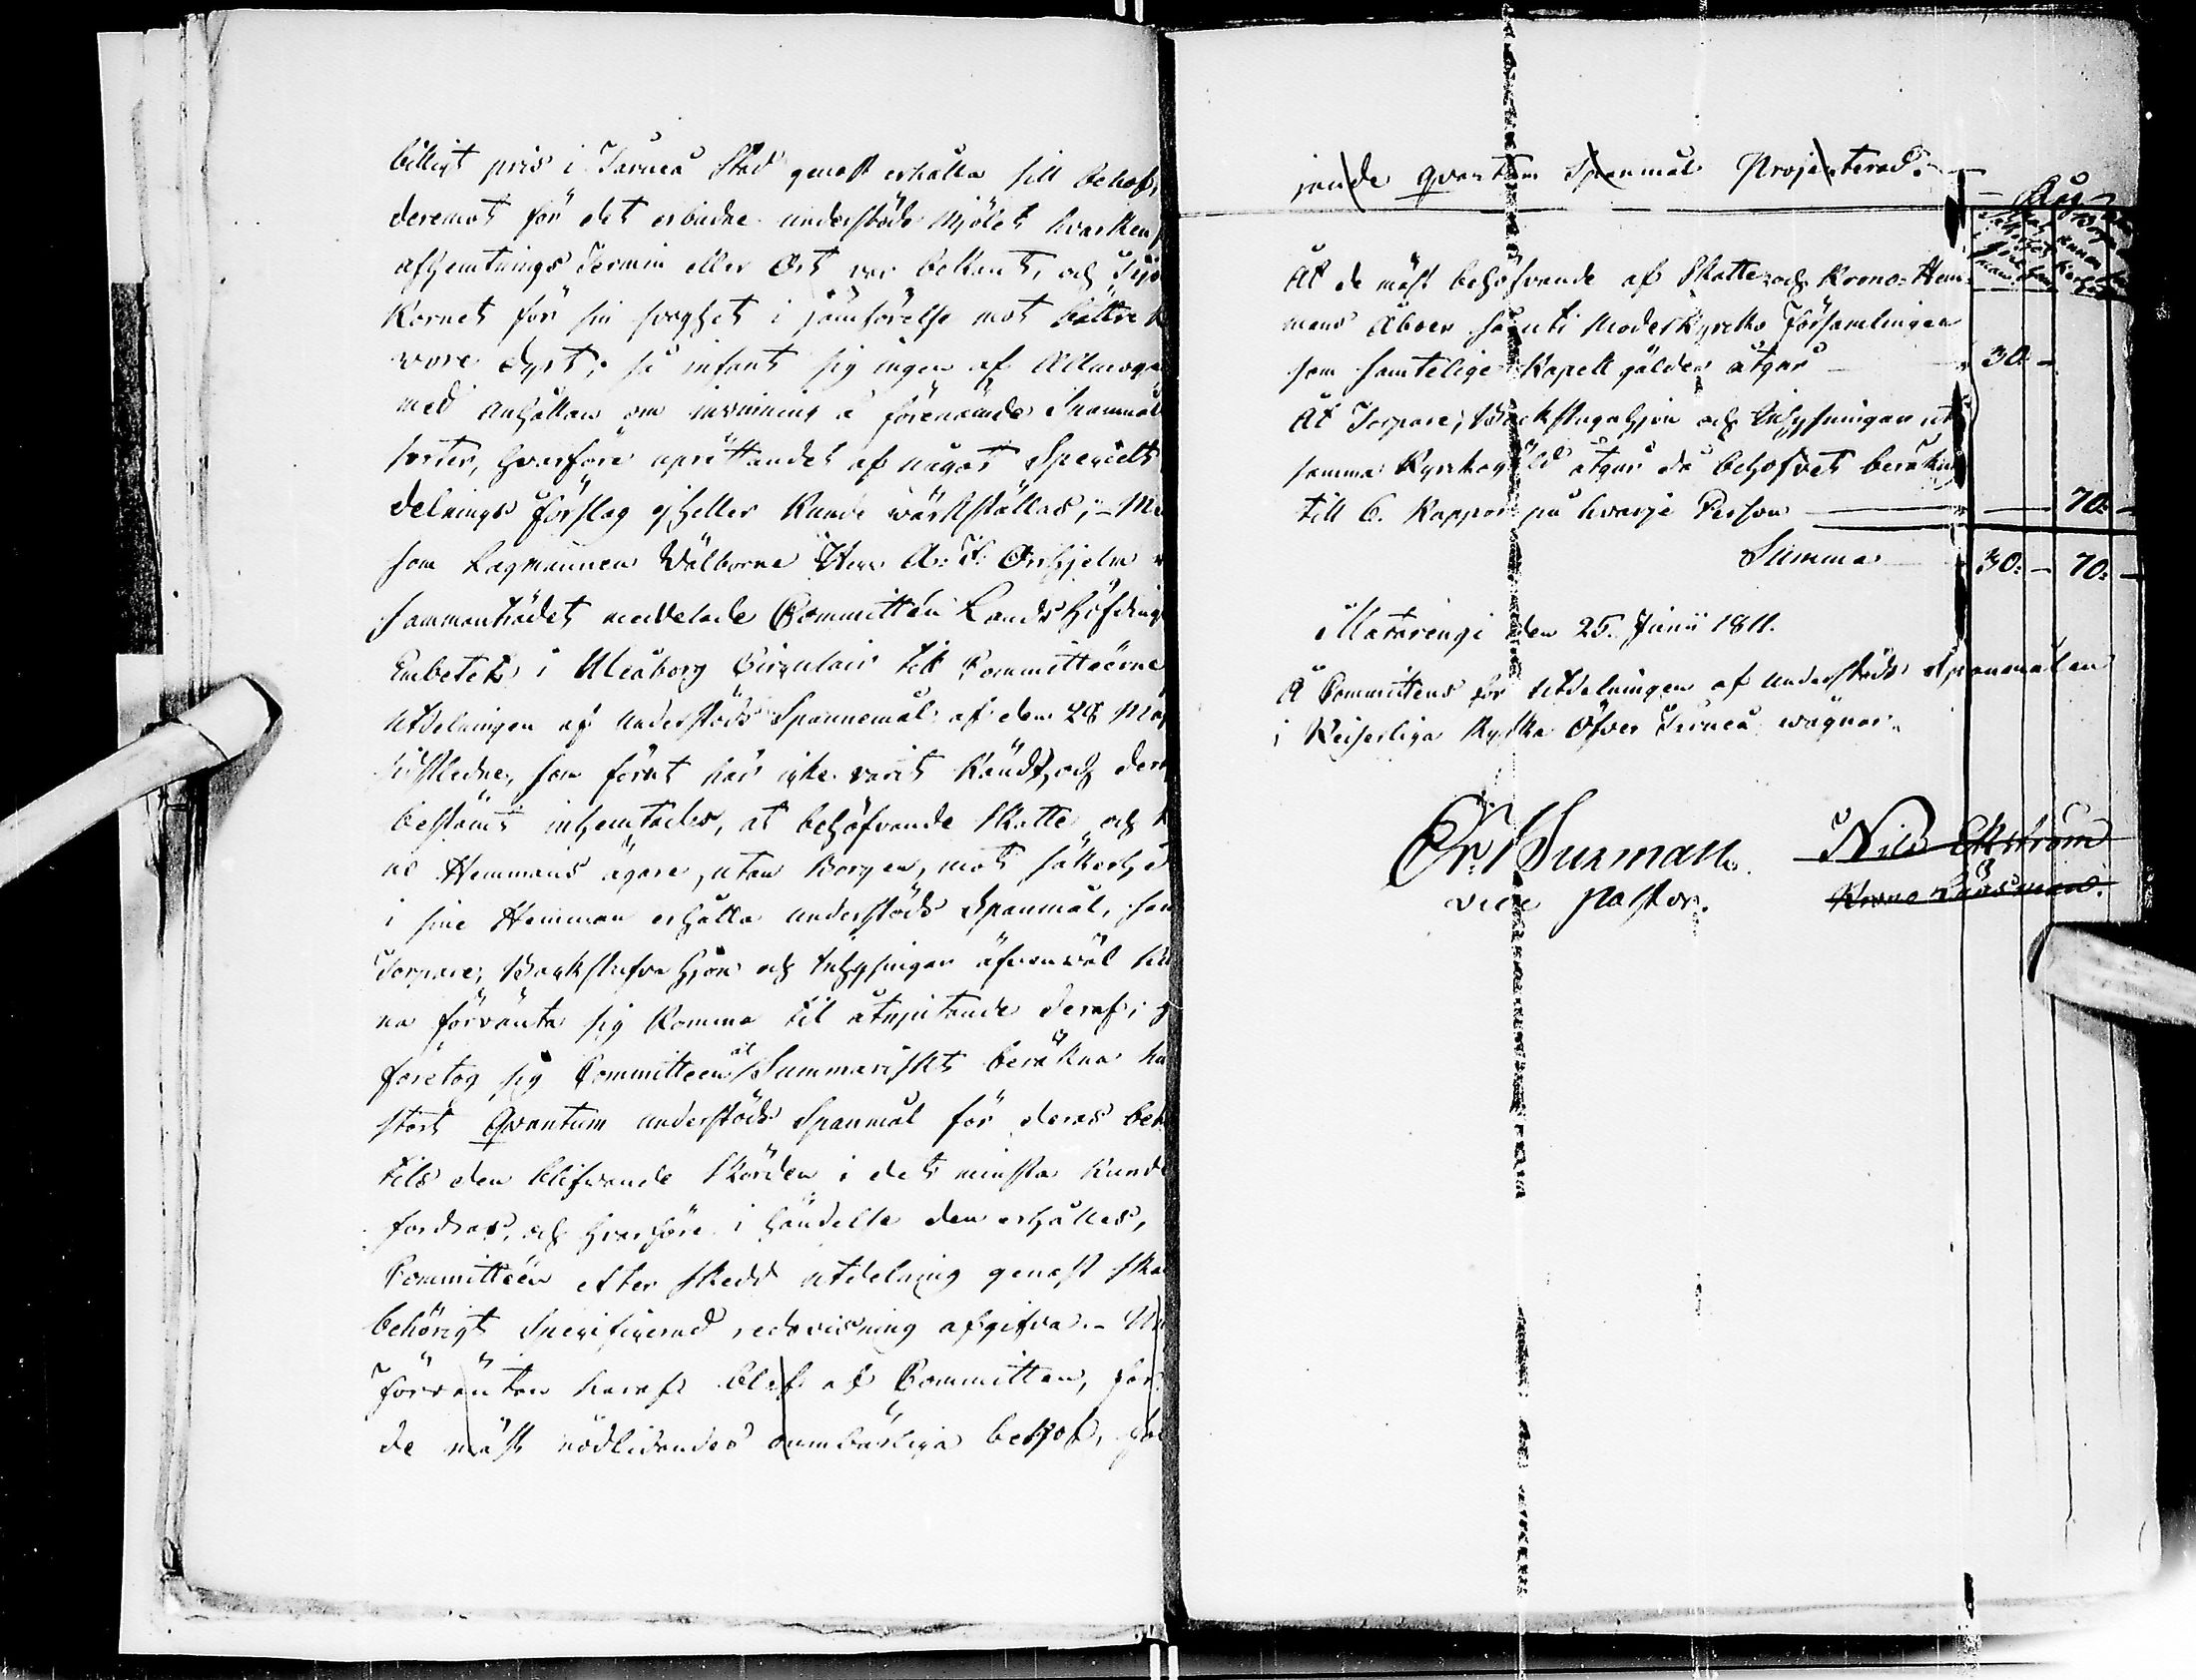 billigt pris i Torneå Stad genast erhålla till behof,
deremot för det erbudne understöds Mjölet hvarken
afhemtnings Termin eller Ort var bekant, och
Kornet för sin svaghet i jämförelse mot bättre
vore dyrt; så infant sig ingen af Allmoge
med anhållan om inrymning å förenämde Spanmåls
sorter, hvarföre uprättandet af något Specielt
delnings förslag ej heller kunde värkställas; -
som Lagmannen Välborne Herr A: F: Orhjelm
sammanträdet meddelade Committén Lands Höfdinge
Embetets i Uleåborg Circulair till Committéerne
utdelningen af understöds Spannemål af den 28 May
sidstledne, som förut här icke varit kändt, och der
bestämt inhemtades, at behöfvande Skatte och
no Hemmans ägare, utan Borgen, mot säkerhet
i sine Hemman erhålla understöds Spanmål, som
Torpare, Backstufvu Hjon och Inhysingar äfvenväl
na förvänta sig komma til åtnjutande deraf;
företog sig Committeen at Summariskt beräkna hu
stort Qvantum understöds Spanmål för deras beh
tils den blifvande Skörden i det minsta kunde
fordras, och hvarföre i händelse den erhålles,
Committéen efter skedd utdelning genast ska
behörigt Specificerad redovisning afgifva. -
Förväntan häraf blef af Committen, för
de mäst nödlidandes oumbärliga behof, föl
jande Qvantum Spanmål Projecterad.
Åt de mäst behöfvande af Skatte och Krono-Hem-
mans Åboer så uti Moderkyrko Församlingen
som samtelige Kapell gälden åtgår 30. -
Åt Torpare, Backstuguhjon och Inhysningar ut
samma Kyrkogäld åtgår då behofvet beräkn
till 6. Kappar på hvarje Person 70. -
Summa 30. - 70. -
Matarengi den 25. Junii 1811.
Å Committens för utdelningen af understöds Spanmålen
i Keiserliga Ryska Öfver Torneå vägnar.
Er. Burman. Nils Ekström
vice Pastor. Krono Länsman.